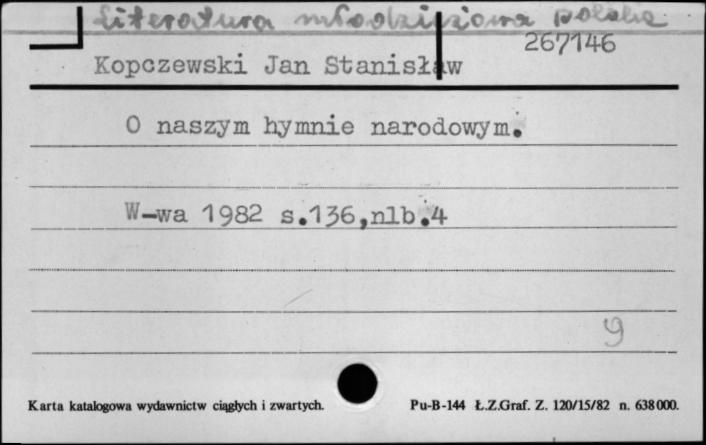 Literatura młodzieżowa polska
267146
Kopczewski Jan Stanisław
O naszym hymnie narodowym.
W-wa 1982 s.136,nlb.4
9
Karta katalogowa wydawnictw ciągłych i zwartych. Pu-B-144 Ł.Z.Graf. Z. 120/15/82 n. 638000.